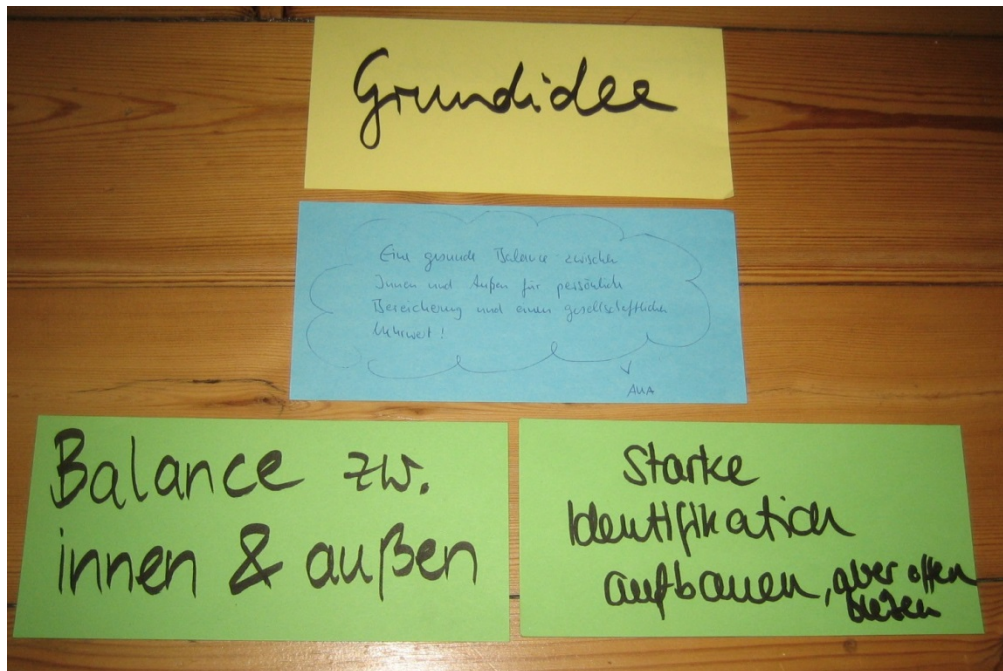 Grundidee
Eine gesunde Balance zwischen
Innen und Außen für persönlich
Bereicherung und einen gesellschaftlichen
Mehrwert!
Balance zw.
innen & außen
Starke
Identifikation
aufbauen, aber offen
bleiben